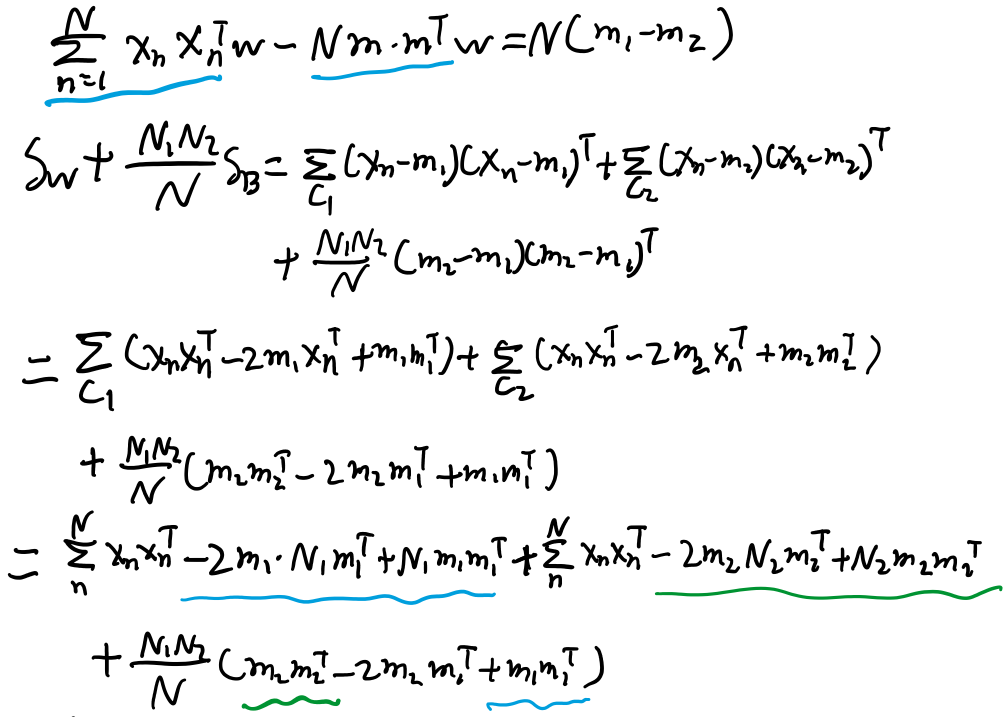 \sum_{n=1}^{N} x_n x_n^T w - N m \cdot m^T w = N(m_1 - m_2)
S_W + \frac{N_1 N_2}{N} S_B = \sum_{C_1} (x_n - m_1)(x_n - m_1)^T + \sum_{C_2} (x_n - m_2)(x_n - m_2)^T
+ \frac{N_1 N_2}{N} (m_2 - m_1)(m_2 - m_1)^T
= \sum_{C_1} (x_n x_n^T - 2 m_1 x_n^T + m_1 m_1^T) + \sum_{C_2} (x_n x_n^T - 2 m_2 x_n^T + m_2 m_2^T)
+ \frac{N_1 N_2}{N} (m_2 m_2^T - 2 m_2 m_1^T + m_1 m_1^T)
= \sum_{n}^{N} x_n x_n^T - 2 m_1 \cdot N_1 m_1^T + N_1 m_1 m_1^T + \sum_{n}^{N} x_n x_n^T - 2 m_2 N_2 m_2^T + N_2 m_2 m_2^T
+ \frac{N_1 N_2}{N} (m_2 m_2^T - 2 m_2 m_1^T + m_1 m_1^T)